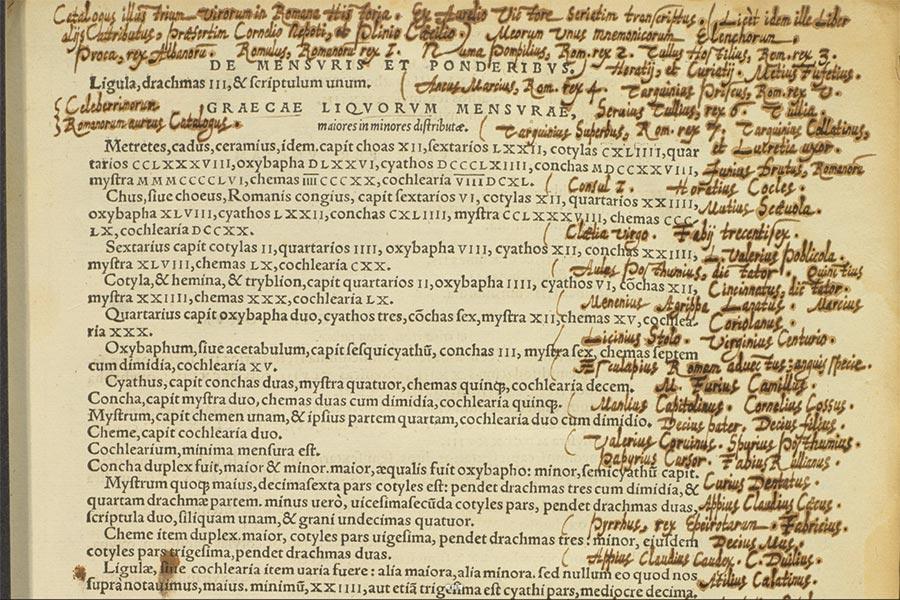 Catalogus illustrium virorum in Romana Historia. Ex Aurelio Victore scriptim transcriptus. (Licet idem ille Liber
alijs Cattributus, Præsertim Cornelio Nepoti, et Plinio Cæcilio.) Meorum Unus mnemonicorum Elenchorum.
Proca, rex Albanorū. Romulus, Romanorū rex 1. Numa Pompilius, Rom. rex 2. Tullus Hostilius, Rom. rex 3.
DE MENSVRIS ET PONDERIBVS.
Horatij, et Curiatij. Metius Fufetius.
Ligula, drachmas III, & scriptulum unum.
Ancus Marcius, Rom. rex 4. Tarquinius Priscus, Rom. rex 5.
Celeberrimorum
Romanorum aureus Catalogus.
GRAECAE LIQVORVM MENSVRAE,
Seruius Tullius, rex 6. Tullia.
maiores in minores distributæ.
Tarquinius Superbus, Rom. rex 7. Tarquinius Collatinus,
et Lucretia uxor.
Metretes, cadus, ceramius, idem. capit choas XII, sextarios LXXII, cotylas CXLIIII, quar
tarios CCLXXXVIII, oxybapha DLXXVI, cyathos DCCCLXIIII, conchas MDCCXXVIII,
Junius Brutus, Romanorū
mystra MMMCCCCLVI, chemas IIIICCCXX, cochlearia VIIIDCXL.
Consul 1. Horatius Cocles.
Chus, siue choeus, Romanis congius, capit sextarios VI, cotylas XII, quartarios XXIIII,
Mutius Scæuola.
oxybapha XLVIII, cyathos LXXII, conchas CXLIIII, mystra CCLXXXVIII, chemas CCC
LX, cochlearia DCCXX.
Clælia virgo. Fabij trecenti sex.
Sextarius capit cotylas II, quartarios IIII, oxybapha VIII, cyathos XII, conchas XXIIII,
L. Valerius Poblicola.
mystra XLVIII, chemas LX, cochlearia CXX.
Aulus Posthumius, dictator. Quintius
Cotyla, & hemina, & tryblion, capit quartarios II, oxybapha IIII, cyathos VI, cōchas XII,
Cincinnatus, dictator.
mystra XXIIII, chemas XXX, cochlearia LX.
Menenius Agrippa Lanatus. Marcius
Coriolanus.
Quartarius capit oxybapha duo, cyathos tres, cōchas sex, mystra XII, chemas XV, cochlea-
ria XXX.
Licinius Stolo. Virginius Centurio.
Oxybaphum, siue acetabulum, capit sesquicyathū, conchas III, mystra sex, chemas septem
cum dimidia, cochlearia XV.
Æsculapius Romam aduectus: anguis specie.
Cyathus, capit conchas duas, mystra quatuor, chemas quinq;, cochlearia decem.
M. Furius Camillus.
Concha, capit mystra duo, chemas duas cum dimidia, cochlearia quinq;.
Manlius Capitolinus. Cornelius Cossus.
Mystrum, capit chemen unam, & ipsius partem quartam, cochlearia duo cum dimidio.
Decius pater. Decius filius.
Cheme, capit cochlearia duo.
Valerius Coruinus. Spurius Posthumius.
Cochlearium, minima mensura est.
Papyrius Cursor. Fabius Rullianus.
Concha duplex fuit, maior & minor. maior, æqualis fuit oxybapho: minor, semicyathū capit.
Curius Dentatus.
Mystrum quoq; maius, decimasexta pars cotyles est: pendet drachmas tres cum dimidia, &
quartam drachmæ partem. minus uerò, uicesimasecūda cotyles pars, pendet drachmas duas,
Appius Claudius Cæcus.
scriptula duo, siliquam unam, & grani undecimas quatuor.
Pyrrhus, rex Epeirotarum. Fabricius.
Cheme item duplex. maior, cotyles pars uigesima, pendet drachmas tres: minor, eiusdem
Decius Mus.
cotyles pars trigesima, pendet drachmas duas.
Appius Claudius Caudex. C. Duilius.
Ligulæ, siue cochlearia item uaria fuere: alia maiora, alia minora. sed nullum eo quod nos
Atilius Calatinus.
supra notauimus, maius. minimū, XXIIII, aut etiā trigesima est cyathi pars, mediocre decima.